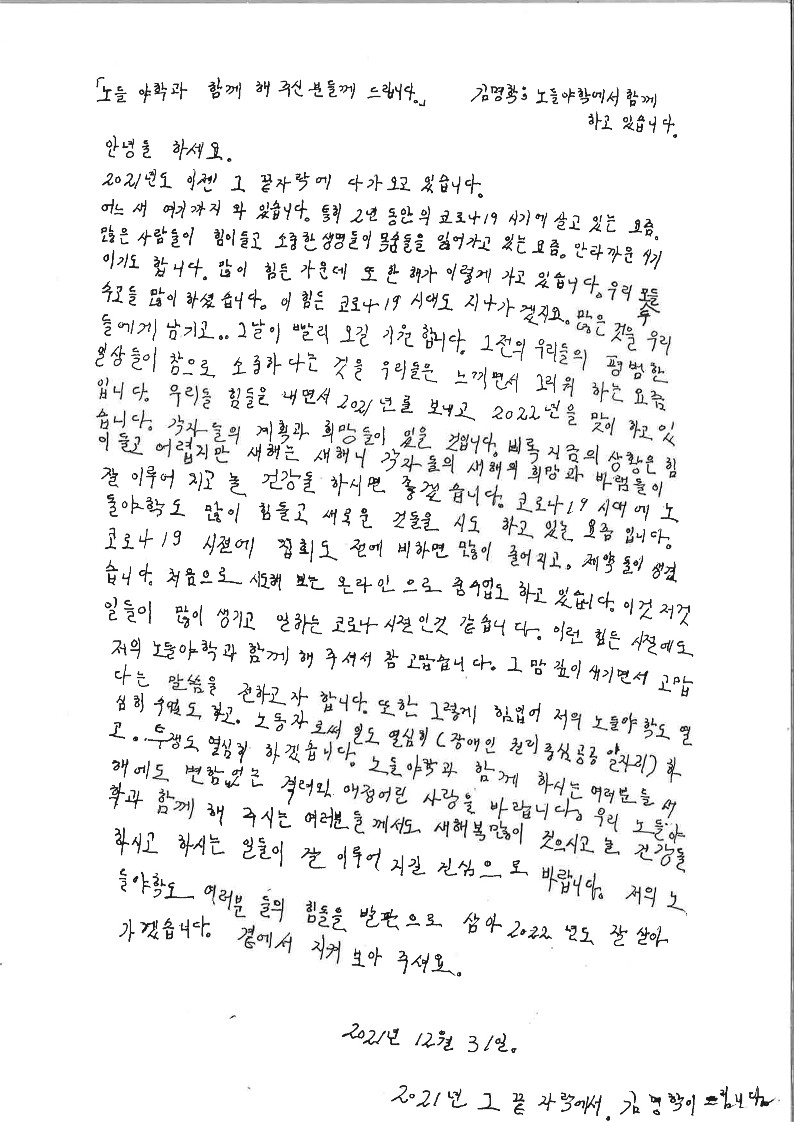 「노들 야학과 함께 해 주신 분들께 드립니다.」 김명학은 노들야학에서 함께
하고 있습니다.
안녕들 하세요.
2021년도 이젠 그 끝자락에 다가오고 있습니다.
어느 새 여기까지 와 있습니다. 특히 2년 동안의 코로나19 시기에 살고 있는 요즘.
많은 사람들이 힘이들고 소중한 생명들이 목숨들을 잃어가고 있는 요즘. 안타까운 시기
이기도 합니다. 많이 힘든 가운데 또 한 해가 이렇게 가고 있습니다. 우리 모두들
수고들 많이 하셨습니다. 이 힘든 코로나19 시대도 지나가겠지요. 많은 것을 우리
들에게 남기고.. 그날이 빨리 오길 기원합니다. 그전의 우리들의 평범한
일상들이 참으로 소중하다는 것을 우리들은 느끼면서 그리워 하는 요즘
입니다. 우리들 힘들을 내면서 2021년를 보내고 2022년을 맞이 하고 있
습니다. 각자 들의 계획과 희망들이 있을 것입니다. 비록 지금의 상황은 힘
이들고 어렵지만 새해는 새해니 각자 들의 새해의 희망과 바램들이
잘 이루어 지고 늘 건강들 하시면 좋겠습니다. 코로나19 시대에 노
들야학도 많이 힘들고 새로운 것들을 시도 하고 있는 요즘 입니다.
코로나19 시절에 집회도 전에 비하면 많이 줄어지고. 제약들이 생겼
습니다. 처음으로 시도해 보는 온라인 으로 줌수업도 하고 있습니다. 이것 저것
일들이 많이 생기고 일하는 코로나 시절인것 같습니다. 이런 힘든 시절에도
저의 노들야학과 함께 해 주셔서 참 고맙습니다. 그 맘 깊이 새기면서 고맙
다는 말씀을 전하고자 합니다. 또한 그렇게 힘입어 저의 노들야학도 열
심히 수업도 하고. 노동자로써 일도 열심히 (장애인 권리중심공공 일자리) 하
고.. 투쟁도 열심히 하겠습니다. 노들야학과 함께 하시는 여러분들 새
해에도 변함없는 격려와 애정어린 사랑을 바랍니다. 우리 노들야
학과 함께 해 주시는 여러분들께서도 새해복많이 것으시고 늘 건강들
하시고 하시는 일들이 잘 이루어 지길 진심으로 바랍니다. 저의 노
들야학도 여러분 들의 힘들을 발판으로 삼아 2022년도 잘 살아
가겠습니다. 곁에서 지켜 보아 주세요.
2021년 12월 31일.
2021년 그 끝자락에서. 김명학이 드립니다.